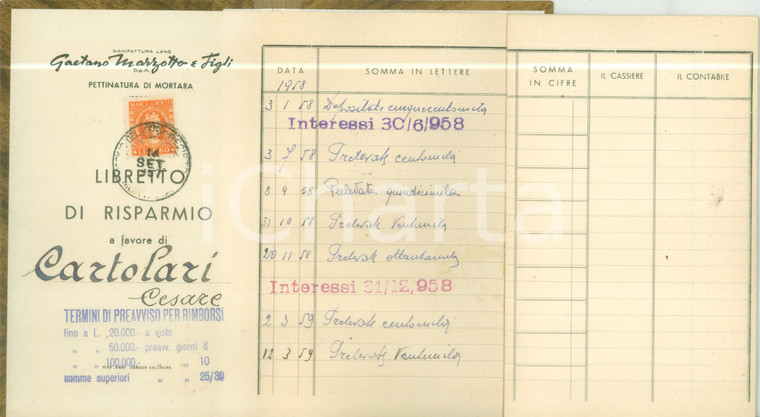 MANIFATTURA LANE
Gaetano Marzotto e Figli
S.p.A.
PETTINATURA DI MORTARA
MARCA DA BOLLO
14
SET
LIBRETTO
DI RISPARMIO
a favore di
Cartolari
Cesare
TERMINI DI PREAVVISO PER RIMBORSI
fino a L. 20.000.- a vista
„ „ 50.000.- preavv. giorni 8
„ „ 100.000.- „ „ 10
somme superiori „ „ 25/30
DATA SOMMA IN LETTERE
1958
3 1 58 Depositate cinquecentomila
Interessi 30/6/958
3 7 58 Prelevate centomila
8 9 58 Prelevate quindicimila
31 10 58 Prelevate Ventimila
20 11 58 Prelevate ottantamila
Interessi 31/12,958
2 3 59 Prelevate centomila
12 3 59 Prelevate Ventimila
SOMMA IN CIFRE IL CASSIERE IL CONTABILE
iCharta